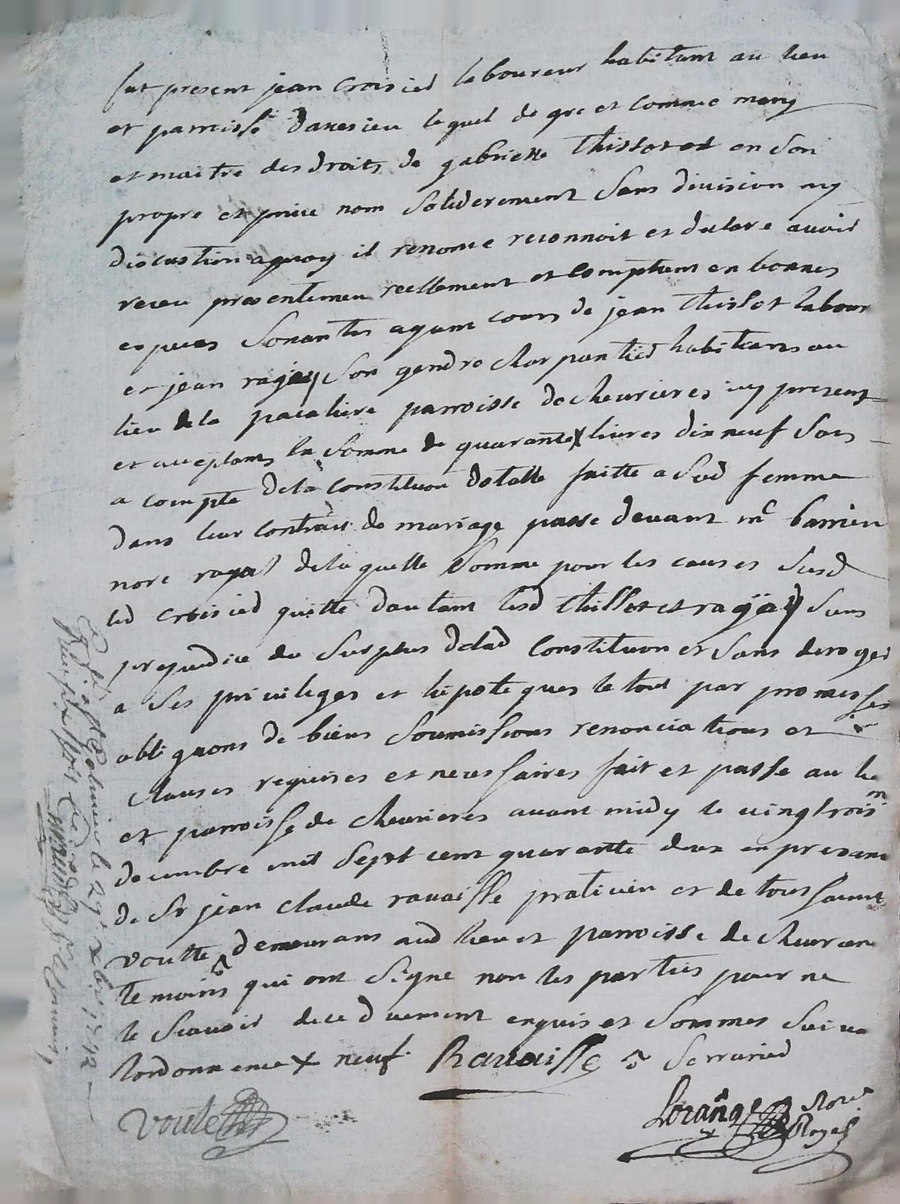 fut present jean croisied laboureur habitant au lieu
et parroisse daveisieu lequel de gre et comme mary
et maitre des droits de gabrielle thissot et en son
propre et prive nom soliderement sans division ny
discustion aquoy il renonce reconnoit et declare avoir
receu presentemen reellement et comptant en bonnes
especes sonantes ayant cours de jean thissot labour
et jean rajay son gendre charpantied habitans au
lieu de la parroisse de chevrieres icy present
et acceptans la somme de quarante livres dix neuf sols
a compte dela constituon dotalle faitte a sad femme
dans leur contrait de mariage passe devant me barrieu
nore royal dela quelle somme pour les causes susd
led croisied quitte dautant lesd thissot et rajay sans
prejudice du surplus delad constituon et sans deroger
a ses privileges et hipoteques le tout par promesses
obligaons de biens soumissions renonciations et
clauses requises et necessaires fait et passe au lieu
et parroisse de chevrieres avant midy le vingtrois
decembre mil sept cent quarante deux en presence
de sr jean claude ravaisse praticien et de toussaint
voutte demeurans aud lieu et parroisse de chevriere
temoins qui ont signe non les parties pour ne
le scavoir de ce duement enquis et sommes suivant
lordonnance x neuf. Ravaisse serruried
voute
nore
Royal
le 29e xbre 1742